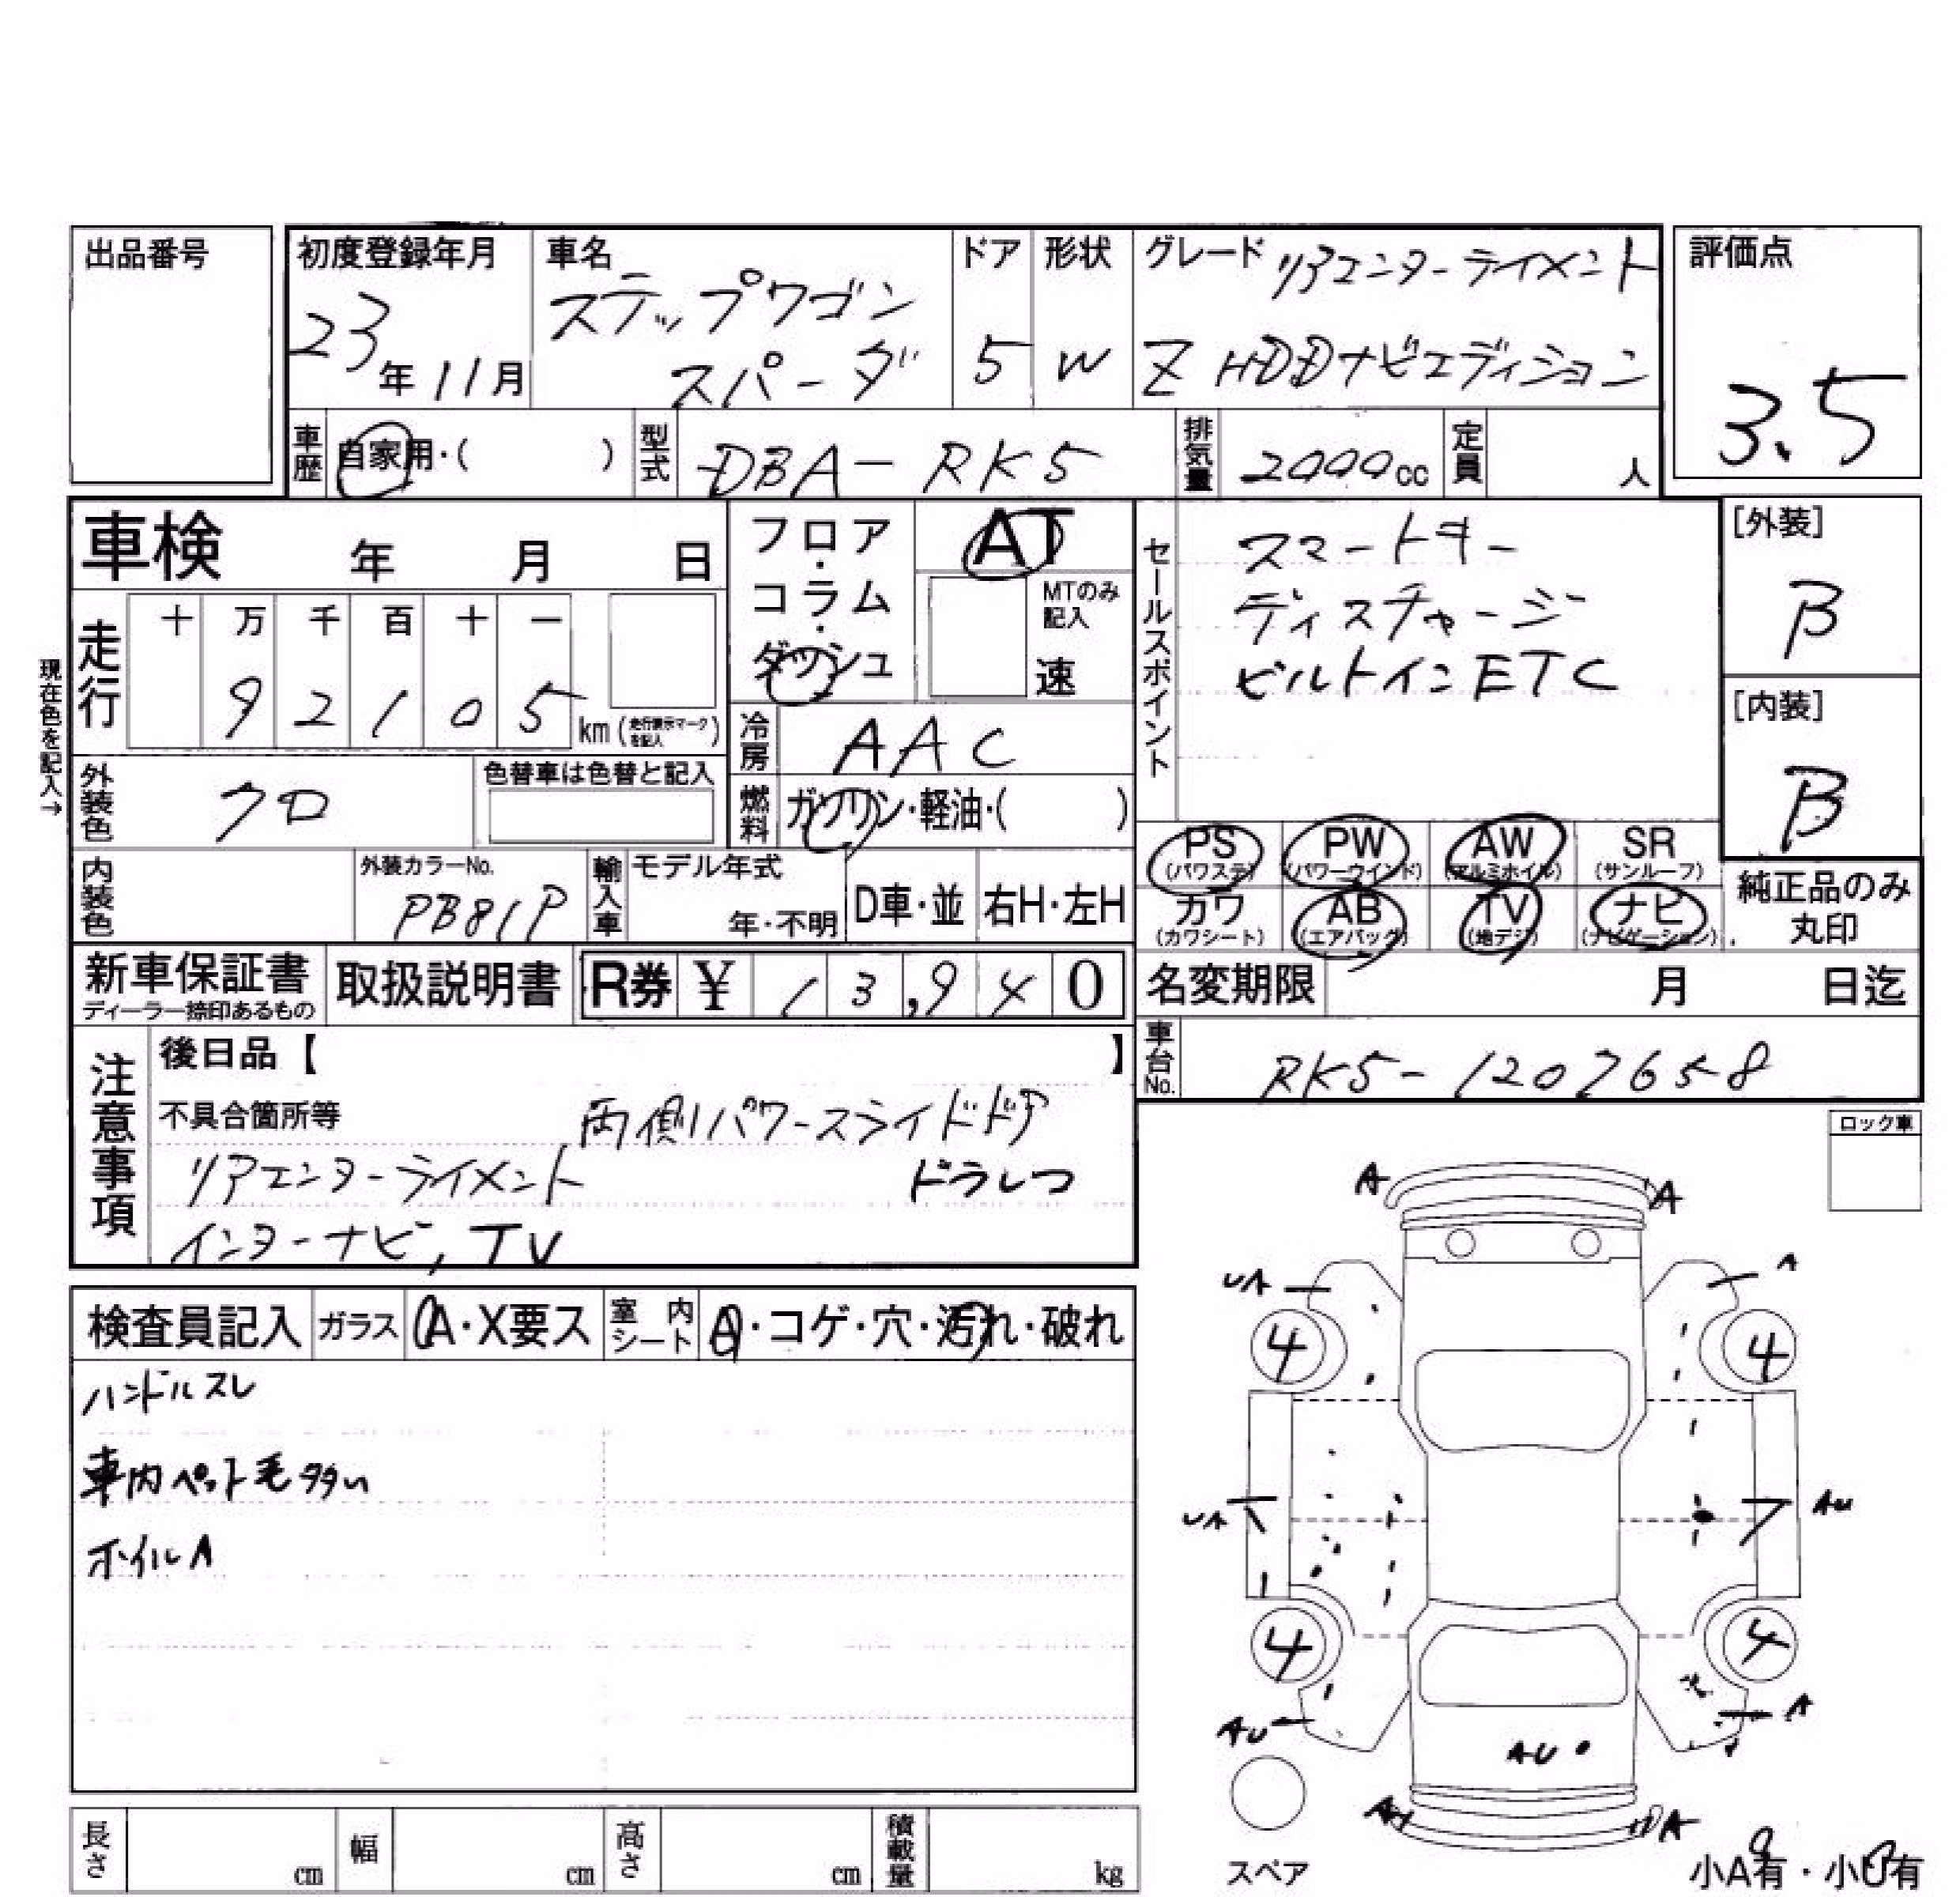 出品番号
初度登録年月
23年11月
車名
ステップワゴン
スパーダ
ドア
5
形状
W
グレード リアエンターテイメント
Z HDDナビエディション
評価点
3.5
車歴
自家用・( )
型式
DBA-RK5
排気量
2000cc
定員
人
車検 年 月 日
フロア・コラム・ダッシュ
AT
MTのみ記入
速
セールスポイント
スマートキー
ディスチャージ
ビルトインETC
[外装]
B
[内装]
B
現在色を記入→
走行
十 万 千 百 十 一
9 2 1 0 5 km (走行表示マークを記入)
冷房
AAC
外装色
クロ
色替車は色替と記入
燃料
ガソリン・軽油・( )
PS (パワステ)
PW (パワーウインド)
AW (アルミホイル)
SR (サンルーフ)
カワ (カワシート)
AB (エアバッグ)
TV (地デジ)
ナビ (ナビゲーション)
純正品のみ丸印
内装色
外装カラーNo.
PB81P
輸入車
モデル年式
年・不明
D車・並
右H・左H
新車保証書
ディーラー捺印あるもの
取扱説明書
R券 ¥ 13,940
名変期限 月 日迄
車台No.
RK5-1207658
注意事項
後日品【 】
不具合箇所等 両側パワースライドドア
リアエンターテイメント ドラレコ
インターナビ, TV
ロック車
検査員記入
ガラス
A・X要ス
室内シート
A・コゲ・穴・汚れ・破れ
ハンドルスレ
車内ペット毛多い
ホイルA
A A
UA A
4 4
UA AU
4 4
AU A
AU
A A
スペア
小A有・小U有
長さ cm
幅 cm
高さ cm
積載量 kg